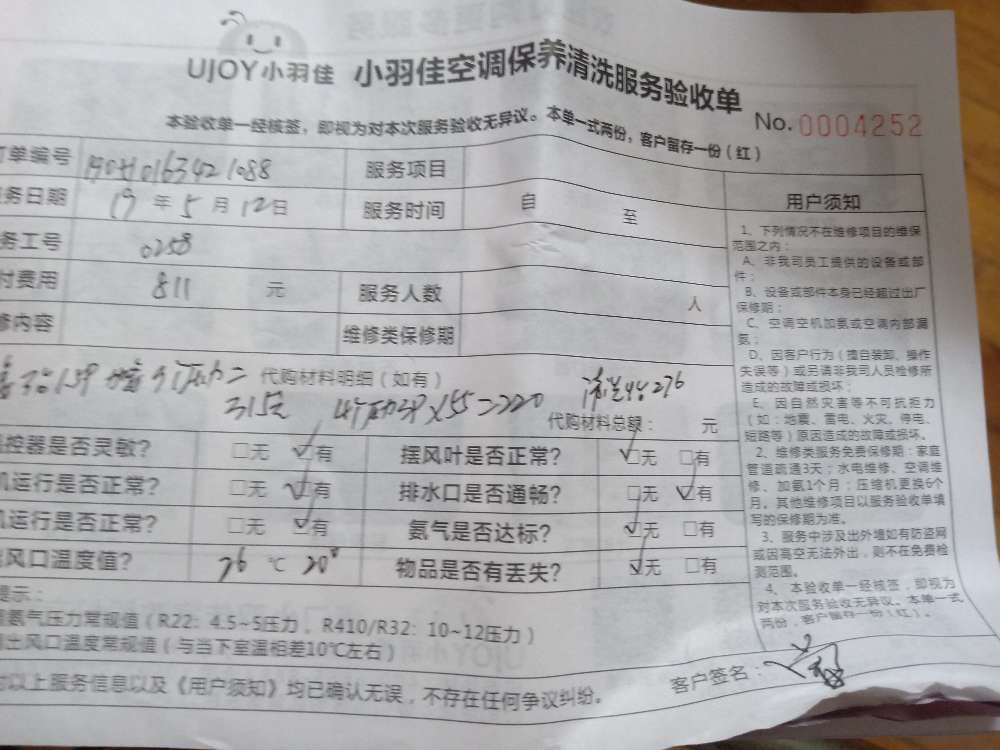 UJOY小羽佳 小羽佳空调保养清洗服务验收单
本验收单一经核签，即视为对本次服务验收无异议。本单一式两份，客户留存一份（红）
No.0004252
订单编号 服务项目
务日期 19 年 5 月 12日 服务时间 自 至
务工号 0258
付费用 811 元 服务人数 人
修内容 维修类保修期
代购材料明细（如有）
315元 4个加3P×55=220 276
代购材料总额： 元
控器是否灵敏？ □无 ☑有 摆风叶是否正常？ ☑无 □有
机运行是否正常？ □无 ☑有 排水口是否通畅？ □无 ☑有
机运行是否正常？ □无 ☑有 氨气是否达标？ ☑无 □有
风口温度值？ 26 ℃ 20° 物品是否有丢失？ ☑无 □有
提示：
氨气压力常规值（R22：4.5~5压力，R410/R32：10~12压力）
出风口温度常规值（与当下室温相差10℃左右）
对以上服务信息以及《用户须知》均已确认无误，不存在任何争议纠纷。
客户签名：
用户须知
1、下列情况不在维修项目的维保
范围之内：
A、非我司员工提供的设备或部
件；
B、设备或部件本身已经超过出厂
保修期；
C、空调空机加氨或空调内部漏
氨；
D、因客户行为（擅自装卸、操作
失误等）或另请非我司人员检修所
造成的故障或损坏；
E、因自然灾害等不可抗拒力
（如：地震、雷电、火灾、停电、
短路等）原因造成的故障或损坏。
2、维修类服务免费保修期：家庭
管道疏通3天；水电维修、空调维
修、加氨1个月；压缩机更换6个
月。其他维修项目以服务验收单填
写的保修期为准。
3、服务中涉及出外墙如有防盗网
或因高空无法外出，则不在免费检
测范围。
4、本验收单一经核签，即视为
对本次服务验收无异议。本单一式
两份，客户留存一份（红）。